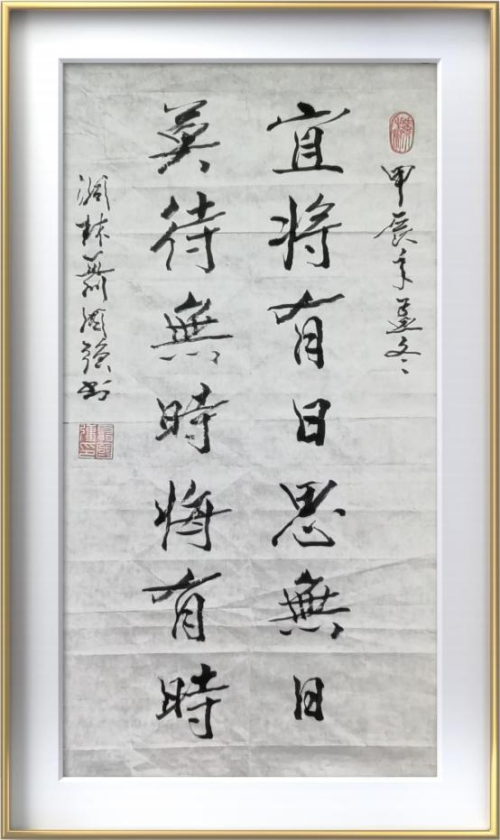 甲辰年孟冬
宜將有日思無日
莫待無時將有時
林蕭國強书